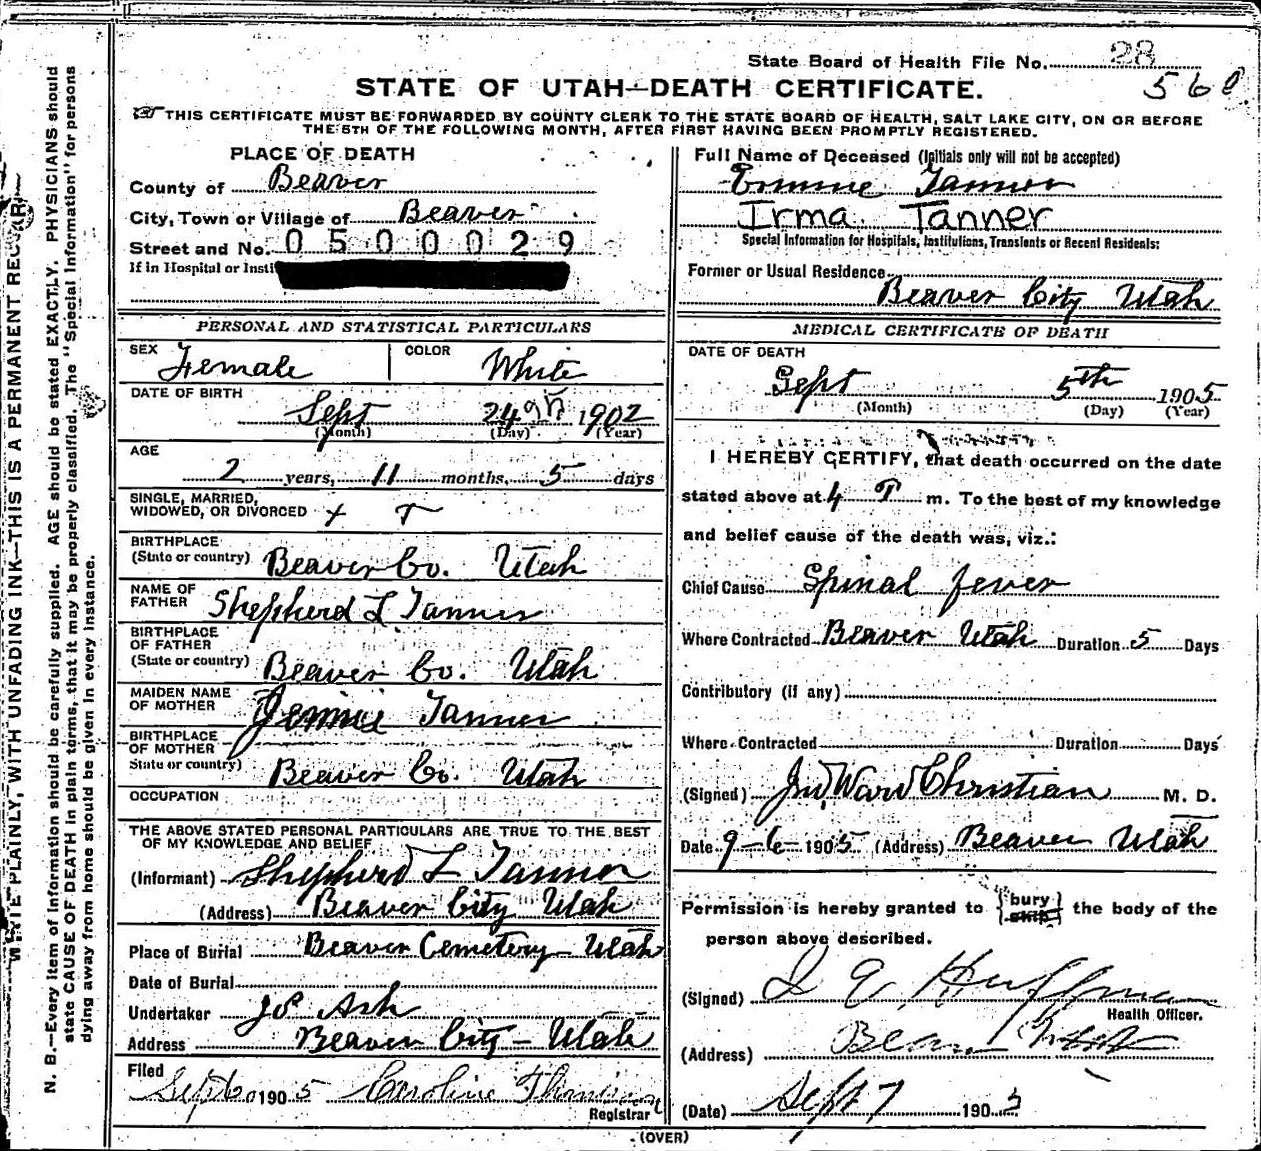 State Board of Health File No. 28
568
STATE OF UTAH—DEATH CERTIFICATE.
THIS CERTIFICATE MUST BE FORWARDED BY COUNTY CLERK TO THE STATE BOARD OF HEALTH, SALT LAKE CITY, ON OR BEFORE
THE 5TH OF THE FOLLOWING MONTH, AFTER FIRST HAVING BEEN PROMPTLY REGISTERED.
PLACE OF DEATH
County of Beaver
City, Town or Village of Beaver
Street and No. 0500029
If in Hospital or Insti
PERSONAL AND STATISTICAL PARTICULARS
SEX Female COLOR White
DATE OF BIRTH
Sept 24 1902
(Month) (Day) (Year)
AGE
2 years, 11 months, 5 days
SINGLE, MARRIED,
WIDOWED, OR DIVORCED
BIRTHPLACE
(State or country) Beaver Co. Utah
NAME OF
FATHER Shepherd L Tanner
BIRTHPLACE
OF FATHER
(State or country) Beaver Co. Utah
MAIDEN NAME
OF MOTHER Jennie Tanner
BIRTHPLACE
OF MOTHER
State or country) Beaver Co. Utah
OCCUPATION
THE ABOVE STATED PERSONAL PARTICULARS ARE TRUE TO THE BEST
OF MY KNOWLEDGE AND BELIEF
(Informant) Shepherd L Tanner
(Address) Beaver City Utah
Place of Burial Beaver Cemetery – Utah
Date of Burial
Undertaker Ash
Address Beaver City – Utah
Filed
Sept 6 1905 Caroline
Registrar
Full Name of Deceased (Initials only will not be accepted)
Tanner
Irma Tanner
Special Information for Hospitals, Institutions, Transients or Recent Residents:
Former or Usual Residence
Beaver City Utah
MEDICAL CERTIFICATE OF DEATH
DATE OF DEATH
Sept 5th 1905
(Month) (Day) (Year)
I HEREBY CERTIFY, that death occurred on the date
stated above at 4 P m. To the best of my knowledge
and belief cause of the death was, viz.:
Chief Cause Spinal fever
Where Contracted Beaver Utah Duration 5 Days
Contributory (if any)
Where Contracted Duration Days
(Signed) Ward Christian M. D.
Date 9-6-1905 (Address) Beaver Utah
Permission is hereby granted to {bury
ship} the body of the
person above described.
(Signed) Huffman
Health Officer.
(Address) Beaver
(Date) Sept 7 1905
(OVER)
WRITE PLAINLY, WITH UNFADING INK—THIS IS A PERMANENT RECORD
N. B.—Every item of information should be carefully supplied. AGE should be stated EXACTLY. PHYSICIANS should
state CAUSE OF DEATH in plain terms, that it may be properly classified. The "Special Information" for persons
dying away from home should be given in every instance.